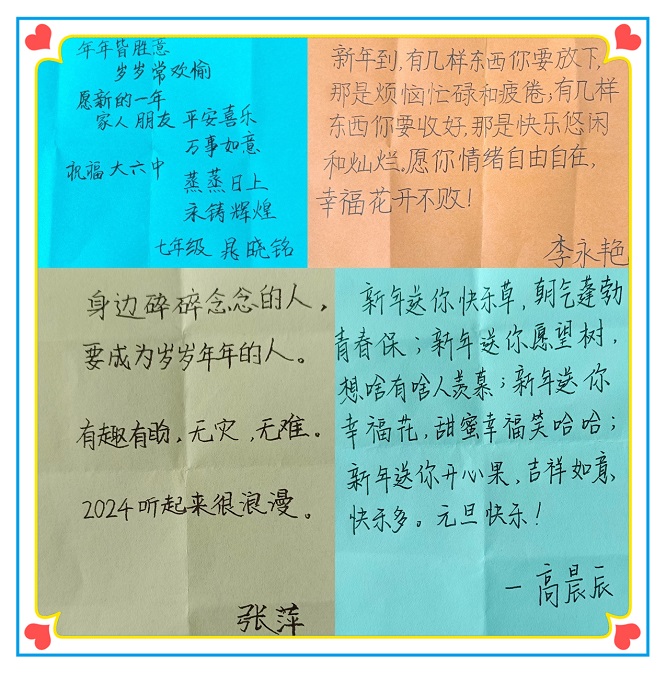 年年皆胜意
岁岁常欢愉
愿新的一年
家人朋友 平安喜乐
万事如意
祝福大六中
蒸蒸日上
永铸辉煌
七年级 晁晓铭
新年到,有几样东西你要放下,
那是烦恼忙碌和疲倦;有几样
东西你要收好,那是快乐悠闲
和灿烂。愿你情绪自由自在,
幸福花开不败!
李永艳
身边碎碎念念的人,
要成为岁岁年年的人。
有趣有盼,无灾,无难。
2024听起来很浪漫。
张萍
新年送你快乐草,朝气蓬勃
青春保;新年送你愿望树,
想啥有啥人羡慕;新年送你
幸福花,甜蜜幸福笑哈哈;
新年送你开心果,吉祥如意
快乐多。元旦快乐!
—高晨辰